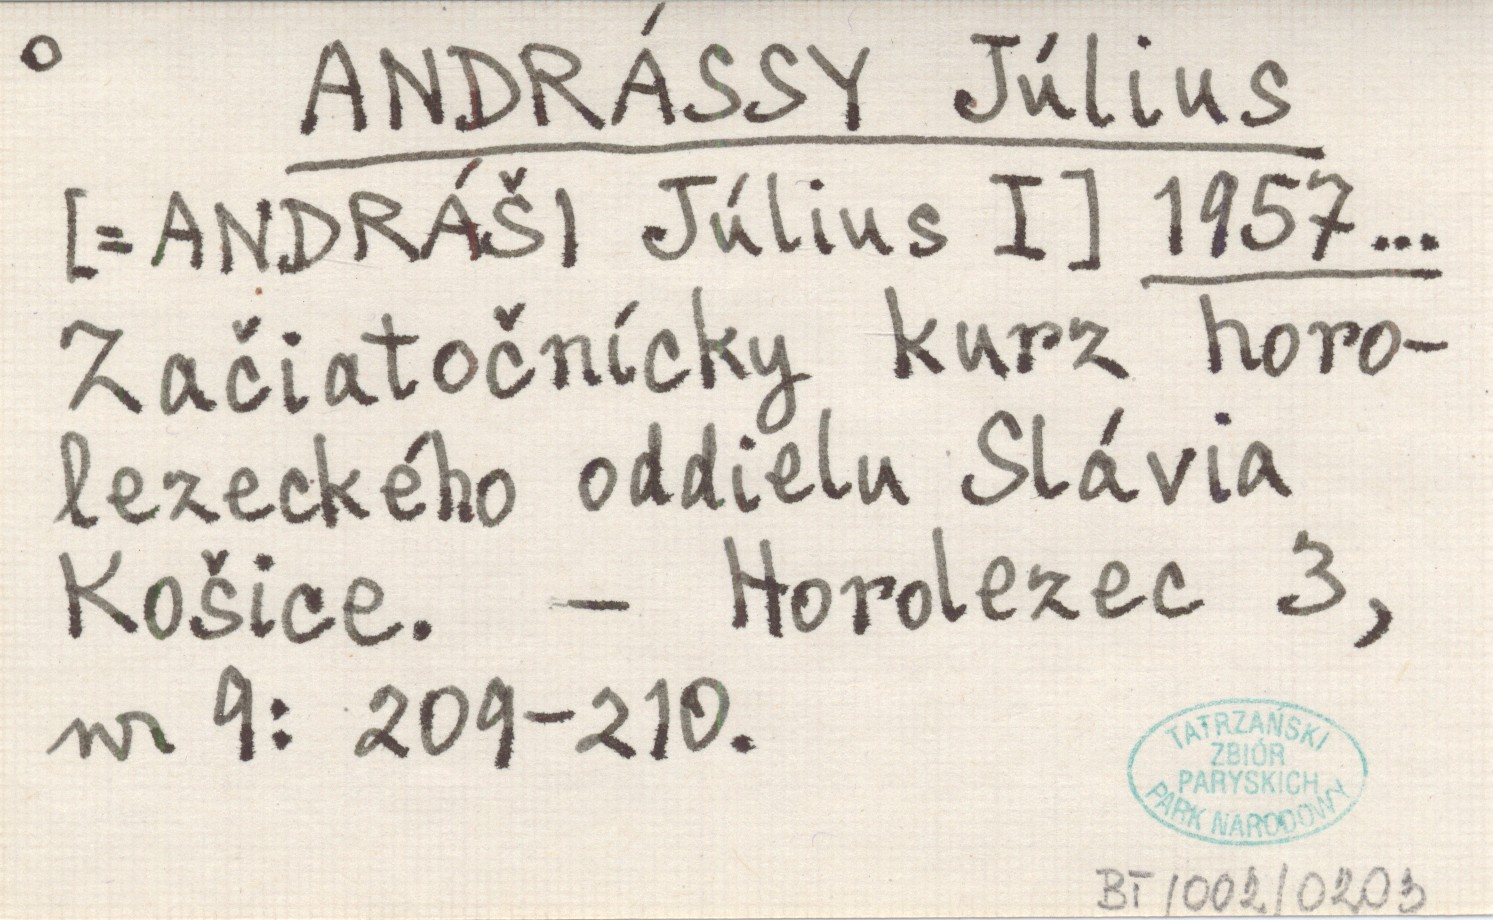 o ANDRÁSSY Július
[=ANDRÁŠI Július I] 1957...
Začiatočnícky kurz horo-
lezeckého oddielu Slávia
Košice. - Horolezec 3,
nr 9: 209-210.
TATRZAŃSKI
ZBIÓR
PARYSKICH
PARK NARODOWY
BT/002/0203